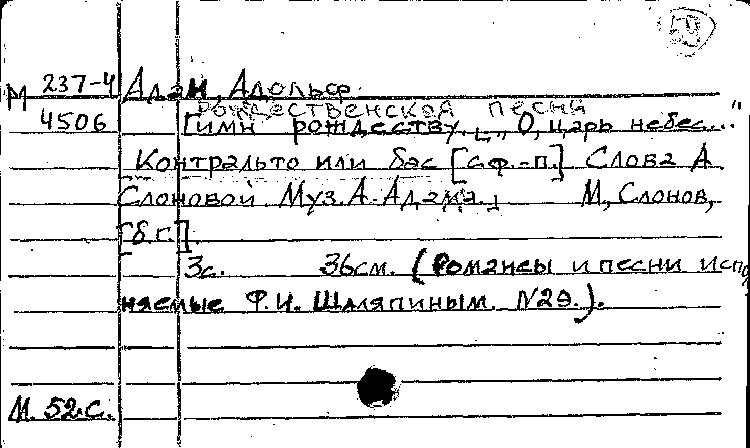 М 237-4 Адан, Адольф.
Рождественской песни
4506 Гимн рождеству. [„О, царь небес..."
Контральто или бас [с ф.-п.] Слова А
Слоновой Муз. А. Адана.] М, Слонов,
[б.г.].
3с. 36см. (Романсы и песни испол
няемые Ф.И. Шаляпиным. N29.).
М. 52.с.